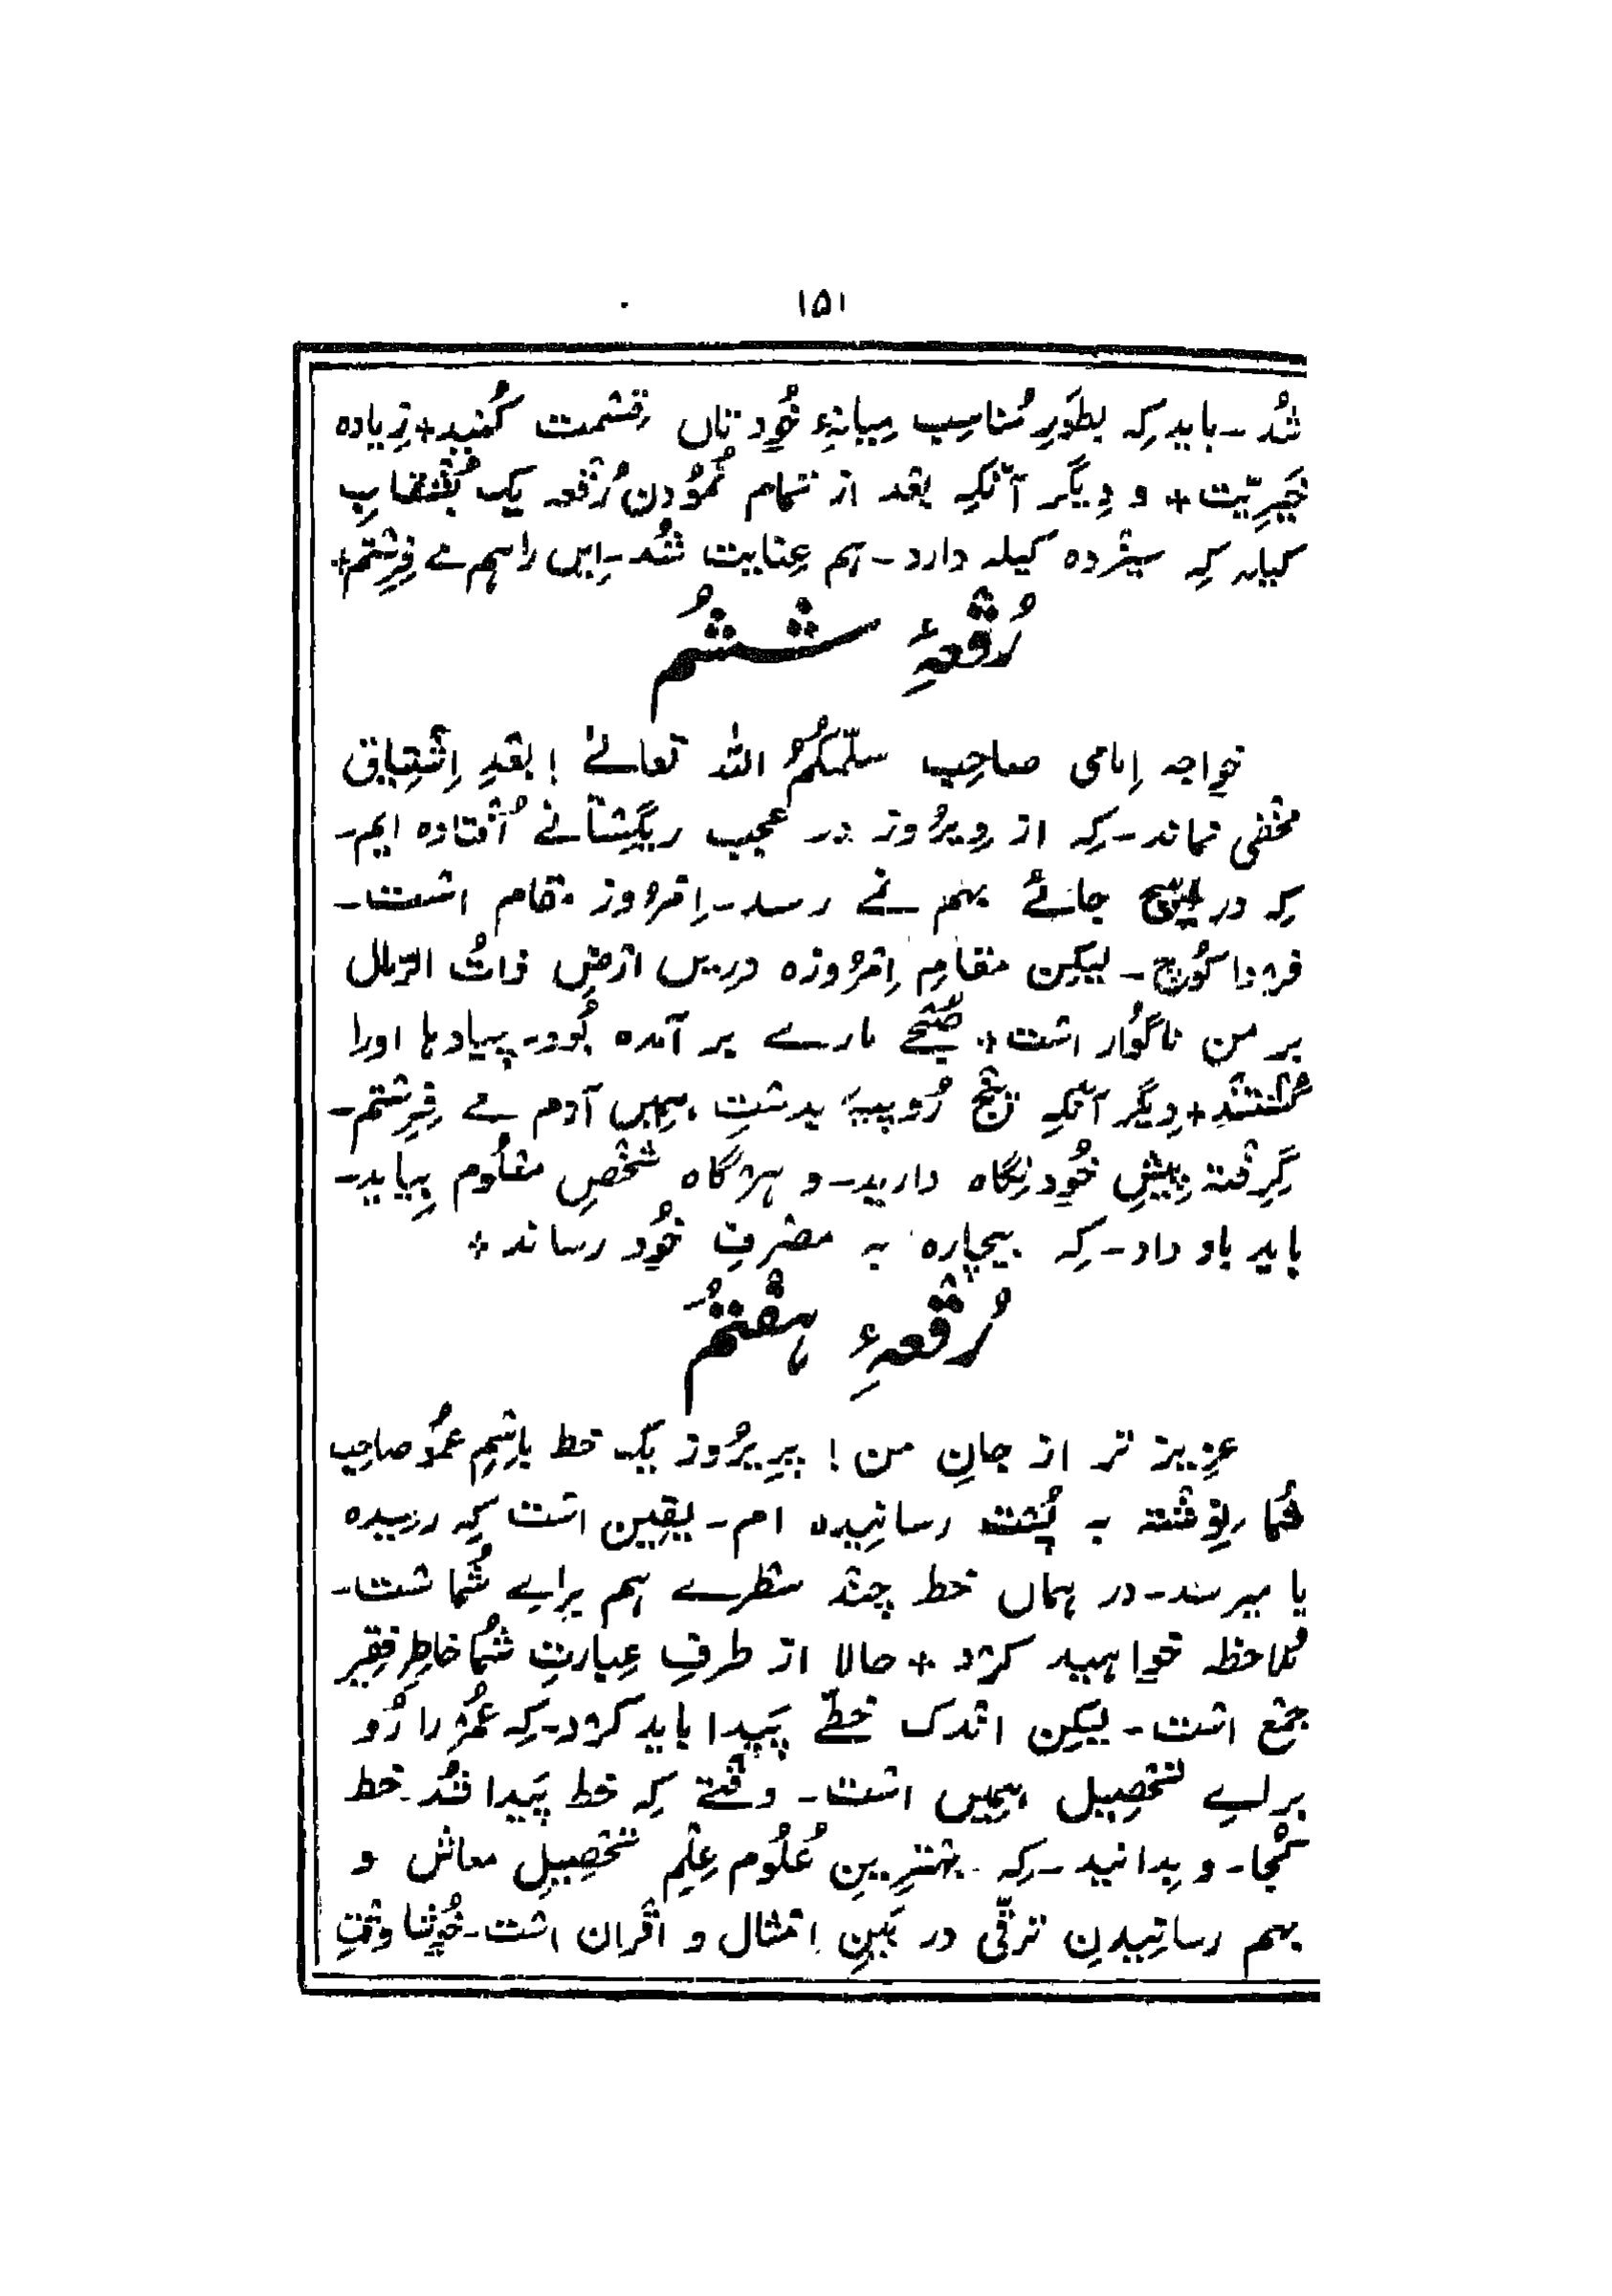 ۱۵۱
شُد۔ باید کِہ بطَورِ مُناسِب مِیانۂِ خُود تاں قِسْمت کُنید + زِیادہ
خَیرِیّت + و دِیگر آنکِہ بعْد از تمام نُمُودنِ رُقْعہ یک بُشْقابِ
کیلہ کِہ سیزْدہ کیلہ دارد۔ ہم عِنایت شُد۔ اِیں را ہم مے فِرِسْتم +
رُقْعۂِ شَشُم
خواجہ اِمامی صاحِب سلّمکُمُ اللہ تعالےٰ ! بعْدِ اِشْتِیاق
مخْفی نماند۔ کِہ از دِیرُوز در عجب ریگِسْتانے اُفْتادہ ایم۔
کِہ در ہیچ جائے بہم نے رسد۔ اِمْرُوز مقام اسْت۔
فرْدا کُوچ۔ لیکِن مقامِ اِمْرُوزہ درِیں ارْضِ ذاتُ الرّمال
بر من ناگُوار اسْت + صُبْحے مارے بر آمدہ بُود۔ پیادہا اورا
کُشْتنْد + دِیگر آنکِہ پنْج رُوپیہ بدسْتِ ہمِیں آدم مے فِرِسْتم۔
گِرِفْتہ پیشِ خُود نِگاہ دارید۔ و ہرْگاہ شخْصِ معْلُوم بِیاید۔
باید باو داد۔ کِہ بیچارہ بہ مصْرفِ خُود رساند +
رُقْعۂِ ہفْتُم
عزِیز تر از جانِ من ! پرِیرُوز یک خط باِسْمِ عمُّو صاحِب
شُما نِوِشْتہ بہ پُسْت رسانِیدہ ام۔ یقِین اسْت کِہ رسِیدہ
یا میرسد۔ در ہماں خط چنْد سطْرے ہم براے شُما سْت۔
مُلاحظہ خواہید کرْد + حالا از طرفِ عِبارتِ شُما خاطِرِ فقِیر
جمْع اسْت۔ لیکِن انْدک خطّے پَیدا باید کرْد۔ کِہ عُمْر را رُو
براے تحْصِیل ہمِیں اسْت۔ وقْتے کِہ خط پَیدا شُد۔ خط
کُجا۔ و بِدانید۔ کِہ بہْترِینِ عُلُوم عِلْمِ تحْصِیلِ معاش و
بہم رسانِیدنِ ترقّی در بَینِ امْثال و اقْران اسْت۔ خُوشا وقْتِ